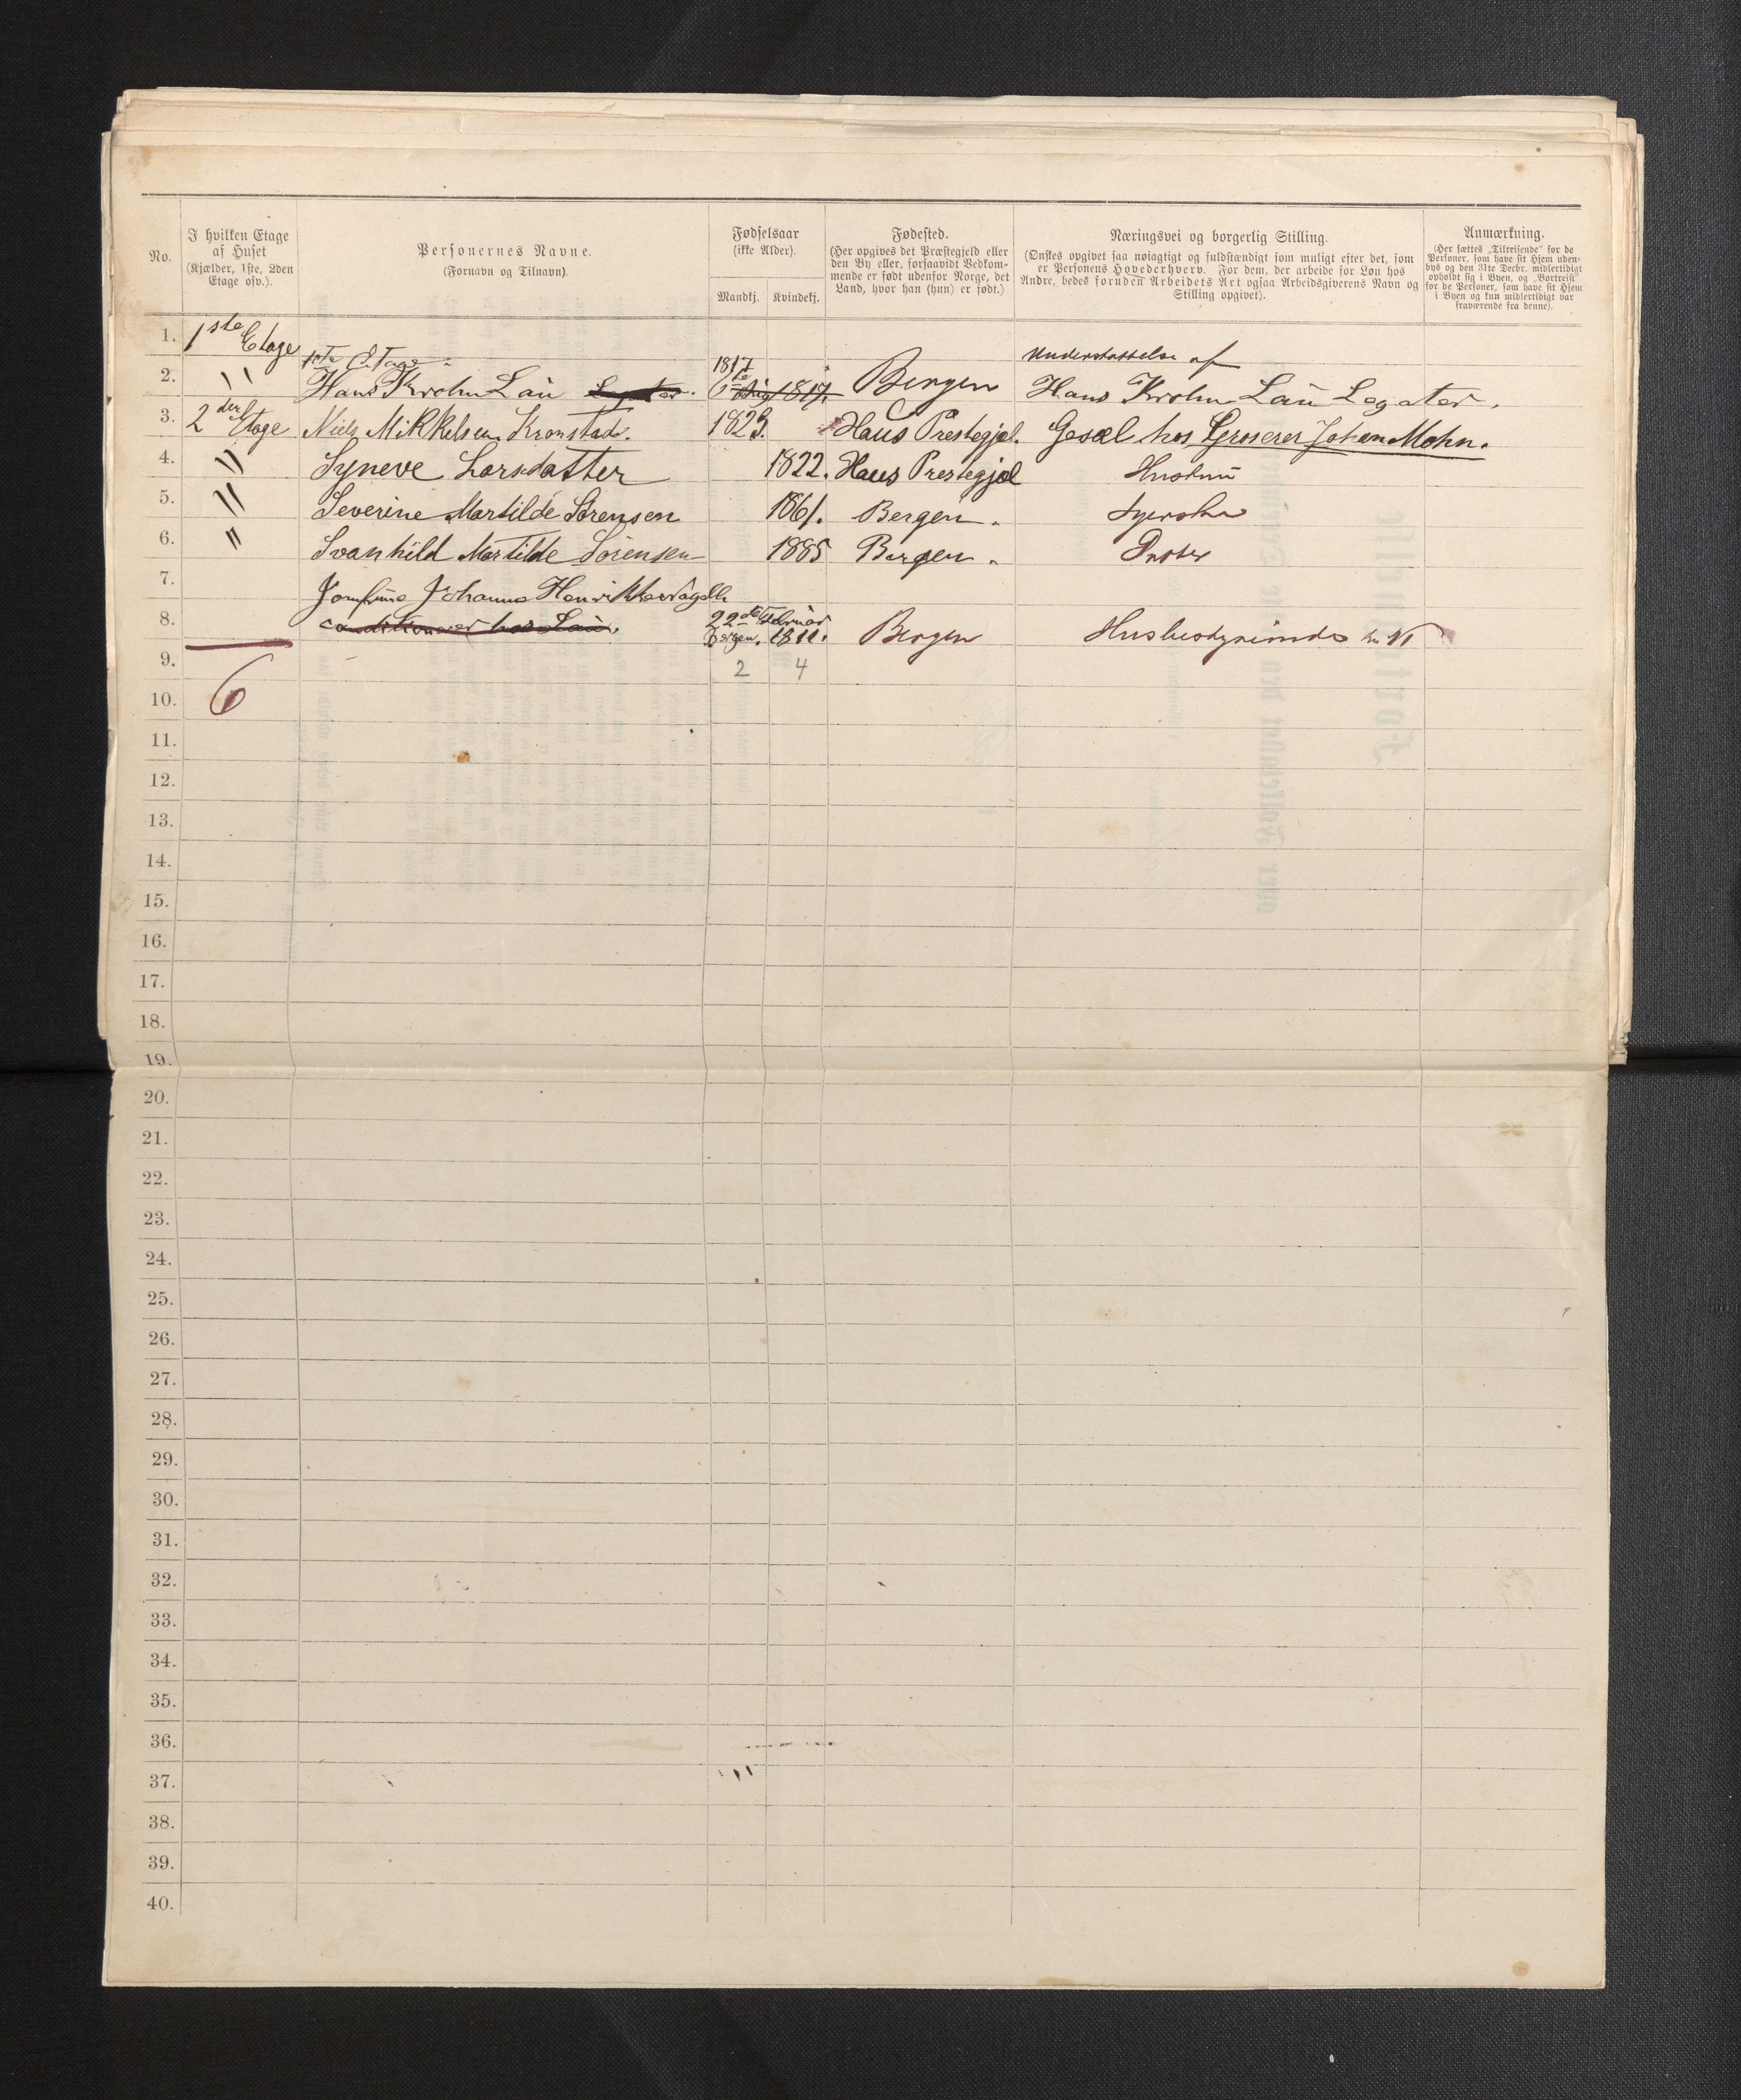 No.
I hvilken Etage
af Huset
(Kjælder, 1ste, 2den
Etage osv.).
Personernes Navne.
(Fornavn og Tilnavn).
Fødselsaar
(ikke Alder).
Mandkj. Kvindekj.
Fødested.
(Her opgives det Præstegjeld eller
den By eller, forsaavidt Vedkom-
mende er født udenfor Norge, det
Land, hvor han (hun) er født.)
Næringsvei og borgerlig Stilling.
(Ønskes opgivet saa nøiagtigt og fuldstændigt som muligt efter det, som
er Personens Hovederhverv. For dem, der arbeide for Løn hos
Andre, bedes foruden Arbeidets Art ogsaa Arbeidsgiverens Navn og
Stilling opgivet).
Anmærkning.
(Her sættes „Tilreisende" for de
Personer, som have sit Hjem uden-
bys og den 31te Decbr. midlertidigt
opholdt sig i Byen, og „Bortreist"
for de Personer, som have sit Hjem
i Byen og kun midlertidigt var
fraværende fra denne).
1. 1ste Etage
1ste Etage 1817 Understøttelse af
2. " Hans Krohn Lau 1817. Bergen Hans Krohn Lau Legater.
3. 2der Etage Niels Mikkelsen Kronstad. 1823. Haus Prestegjel. Gesæl hos Groserer Johan Mohn.
4. " Syneve Larsdatter 1822. Haus Prestegjel Hustru
5. " Severine Martilde Sörensen 1861. Bergen. Syerske
6. " Svanhild Martilde Sörensen 1885 Bergen. Datter
7. Jomfrue Johanne Henrikke
8. conditionerer hos Lau. 22de Februar
Bergen. 1811. Bergen Husbestyrinde
9. 2 4
10. 6
11.
12.
13.
14.
15.
16.
17.
18.
19.
20.
21.
22.
23.
24.
25.
26.
27.
28.
29.
30.
31.
32.
33.
34.
35.
36.
37.
38.
39.
40.